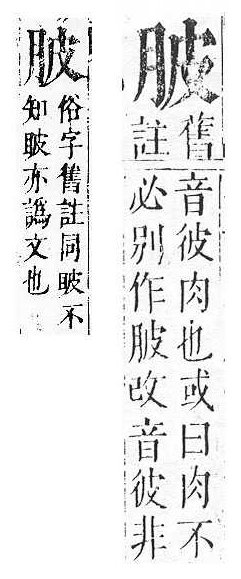 䏢
舊註
音彼肉也或曰肉不
必別作䏢改音彼非
䏢
俗字舊註同䏢不
知䏢亦譌文也